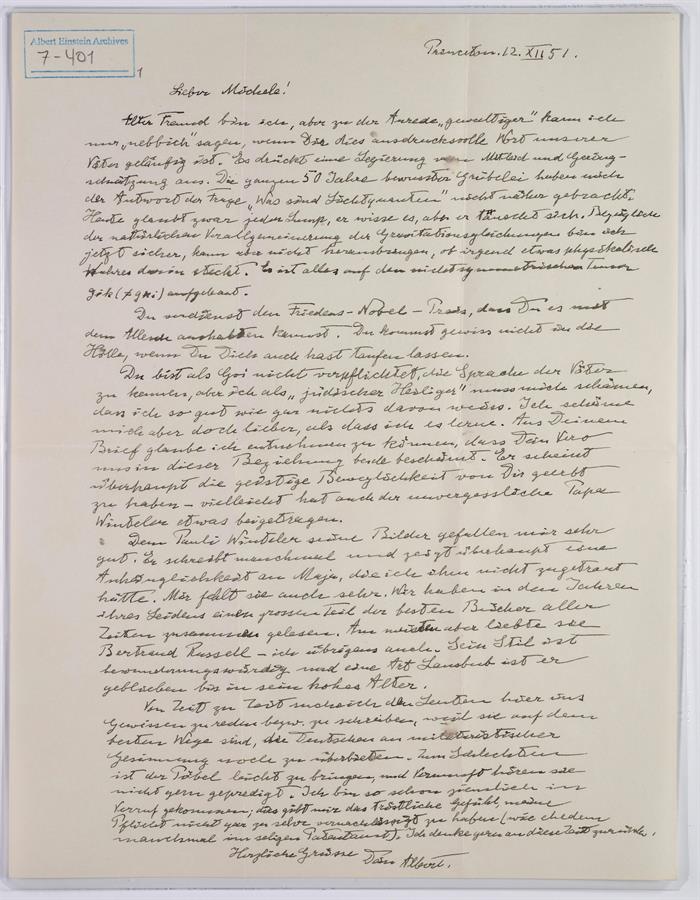 Albert Einstein Archives
7-401
1
Princeton. 12. XII 51.
Lieber Michele!
Alter Freund bin ich, aber zu der Anrede „gewaltiger" kann ich
nur „nebbich" sagen, wenn Dir dies ausdrucksvolle Wort unserer
Väter geläufig ist. Es drückt eine Legierung von Mitleid und Gering-
schätzung aus. Die ganzen 50 Jahre bewusster Grübelei haben mich
der Antwort der Frage „Was sind Lichtquanten" nicht näher gebracht.
Heute glaubt zwar jeder Lump, er wisse es, aber er täuscht sich. Bezüglich
der natürlichen Verallgemeinerung der Gravitationsgleichungen bin ich
jetzt sicher, kann aber nicht herausbringen, ob irgend etwas physikalisch
Wahres darin steckt. Es ist alles auf den nichtsymmetrischen Tensor
gik (≠ gki) aufgebaut.
Du verdienst den Friedens-Nobel-Preis, dass Du es mit
dem Allende aushalten kannst. Du kommst gewiss nicht in die
Hölle, wenn Du Dich auch hast taufen lassen.
Du bist als Goi nicht verpflichtet, die Sprache der Väter
zu kennen, aber ich als „jüdischer Heiliger" muss mich schämen,
dass ich so gut wie gar nichts davon weiss. Ich schäme
mich aber doch lieber, als dass ich es lerne. Aus Deinem
Brief glaube ich entnehmen zu können, dass Dein Vero
uns in dieser Beziehung beide beschämt. Er scheint
überhaupt die geistige Beweglichkeit von Dir geerbt
zu haben – vielleicht hat auch der unvergessliche Papa
Winteler etwas beigetragen.
Dem Pauli Winteler seine Bilder gefallen mir sehr
gut. Er schreibt manchmal und zeigt überhaupt eine
Anhänglichkeit an Maja, die ich ihm nicht zugetraut
hätte. Mir fehlt sie auch sehr. Wir haben in den Jahren
ihres Leidens einen grossen Teil der besten Bücher aller
Zeiten zusammen gelesen. Am meisten aber liebte sie
Bertrand Russell – ich übrigens auch. Sein Stil ist
bewunderungswürdig und eine Art Lausbub ist er
geblieben bis in sein hohes Alter.
Von Zeit zu Zeit muss ich den Leuten hier ins
Gewissen zu reden bezw. zu schreiben, weil sie auf dem
besten Wege sind, die Deutschen an militaristischer
Gesinnung noch zu überbieten. Zum Schlechten
ist der Pöbel leicht zu bringen, und Vernunft hören sie
nicht gern gepredigt. Ich bin so schon ziemlich in
Verruf gekommen, das gibt mir das tröstliche Gefühl, meine
Pflicht nicht gar zu sehr vernachlässigt zu haben (wie ehedem
manchmal im seligen Patentamt). Ich denke gern an diese Zeit zurück.
Herzliche Grüsse Dein Albert.